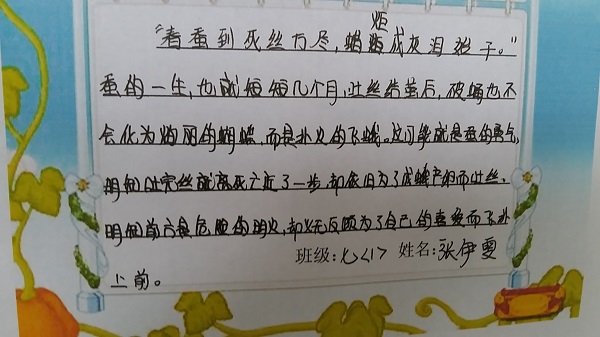 炬
“春蚕到死丝方尽，蜡成灰泪始干。”
蚕的一生，也就短短几个月，吐丝结茧后，破蛹也不
会化为炫丽的蝴蝶，而是扑火的飞蛾。这可能就是蚕的勇气，
明知吐完丝就离死亡近了一步，却依旧为了成蛾产卵而吐丝。
明知前方是危险的明火，却义无反顾为了自己的喜爱而飞扑
班级：七<1> 姓名：张伊雯
上前。